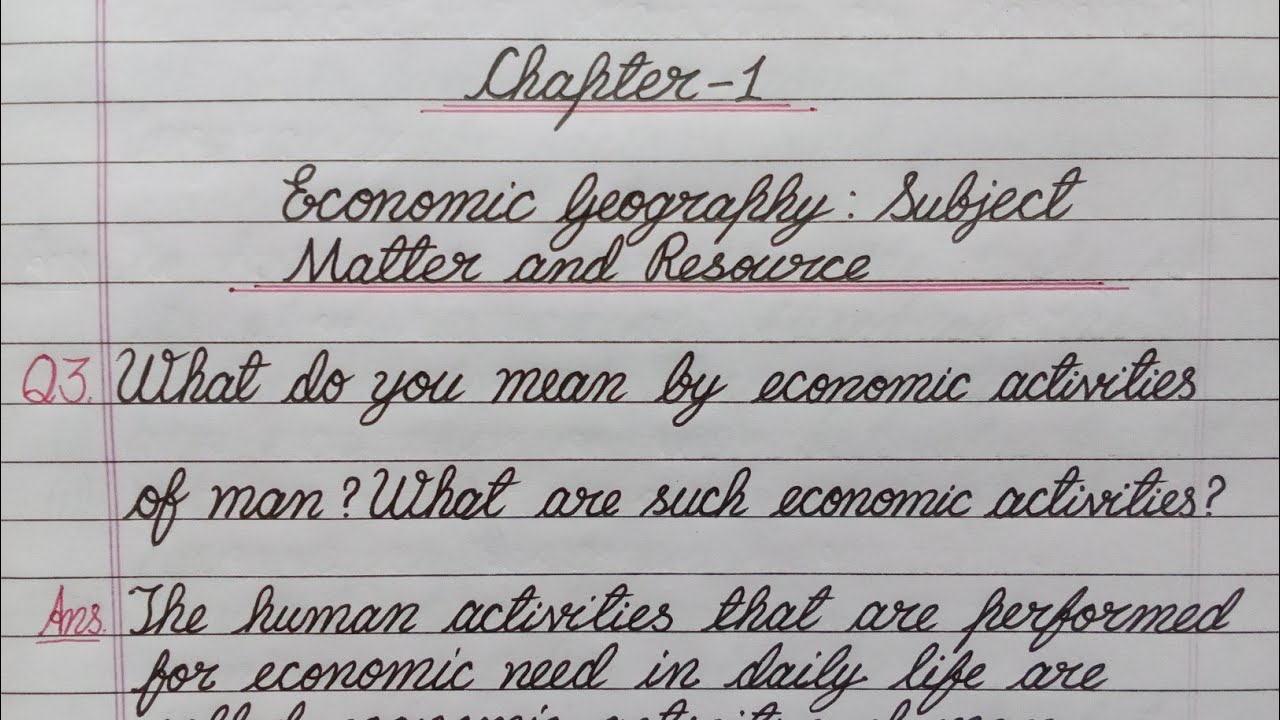 Chapter-1
Economic Geography: Subject
Matter and Resource
Q3. What do you mean by economic activities
of man? What are such economic activities?
Ans. The human activities that are performed
for economic need in daily life are